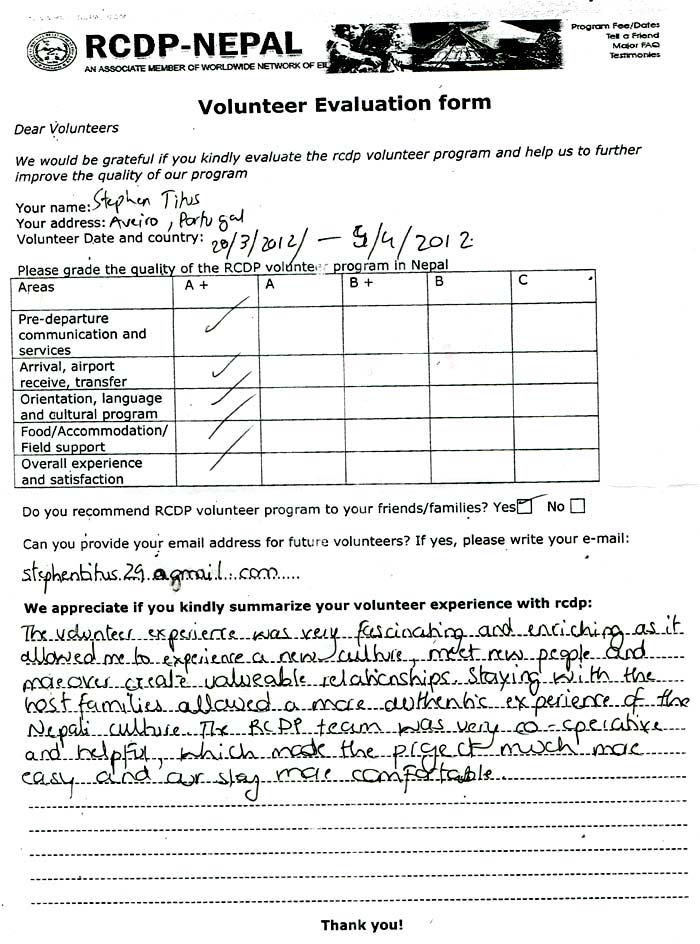 RCDP-NEPAL
AN ASSOCIATE MEMBER OF WORLDWIDE NETWORK OF
Program Fee/Dates
Tell a Friend
Major FAQ
Testimonies
Volunteer Evaluation form
Dear Volunteers
We would be grateful if you kindly evaluate the rcdp volunteer program and help us to further
improve the quality of our program
Your name: Stephen Titus
Your address: Aveiro, Portugal
Volunteer Date and country: 20/3/2012/ — 5/4/2012
Please grade the quality of the RCDP volunteer program in Nepal
Areas A + A B + B C
Pre-departure
communication and
services
Arrival, airport
receive, transfer
Orientation, language
and cultural program
Food/Accommodation/
Field support
Overall experience
and satisfaction
Do you recommend RCDP volunteer program to your friends/families? Yes No
Can you provide your email address for future volunteers? If yes, please write your e-mail:
stephentitus.29.@gmail.com
We appreciate if you kindly summarize your volunteer experience with rcdp:
The volunteer experience was very fascinating and enriching as it
allowed me to experience a new culture, meet new people and
moreover create valueable relationships. Staying with the
host families allowed a more authentic experience of the
Nepali culture. The RCDP team was very co-operative
and helpful, which made the project much more
easy and our stay more comfortable.
Thank you!